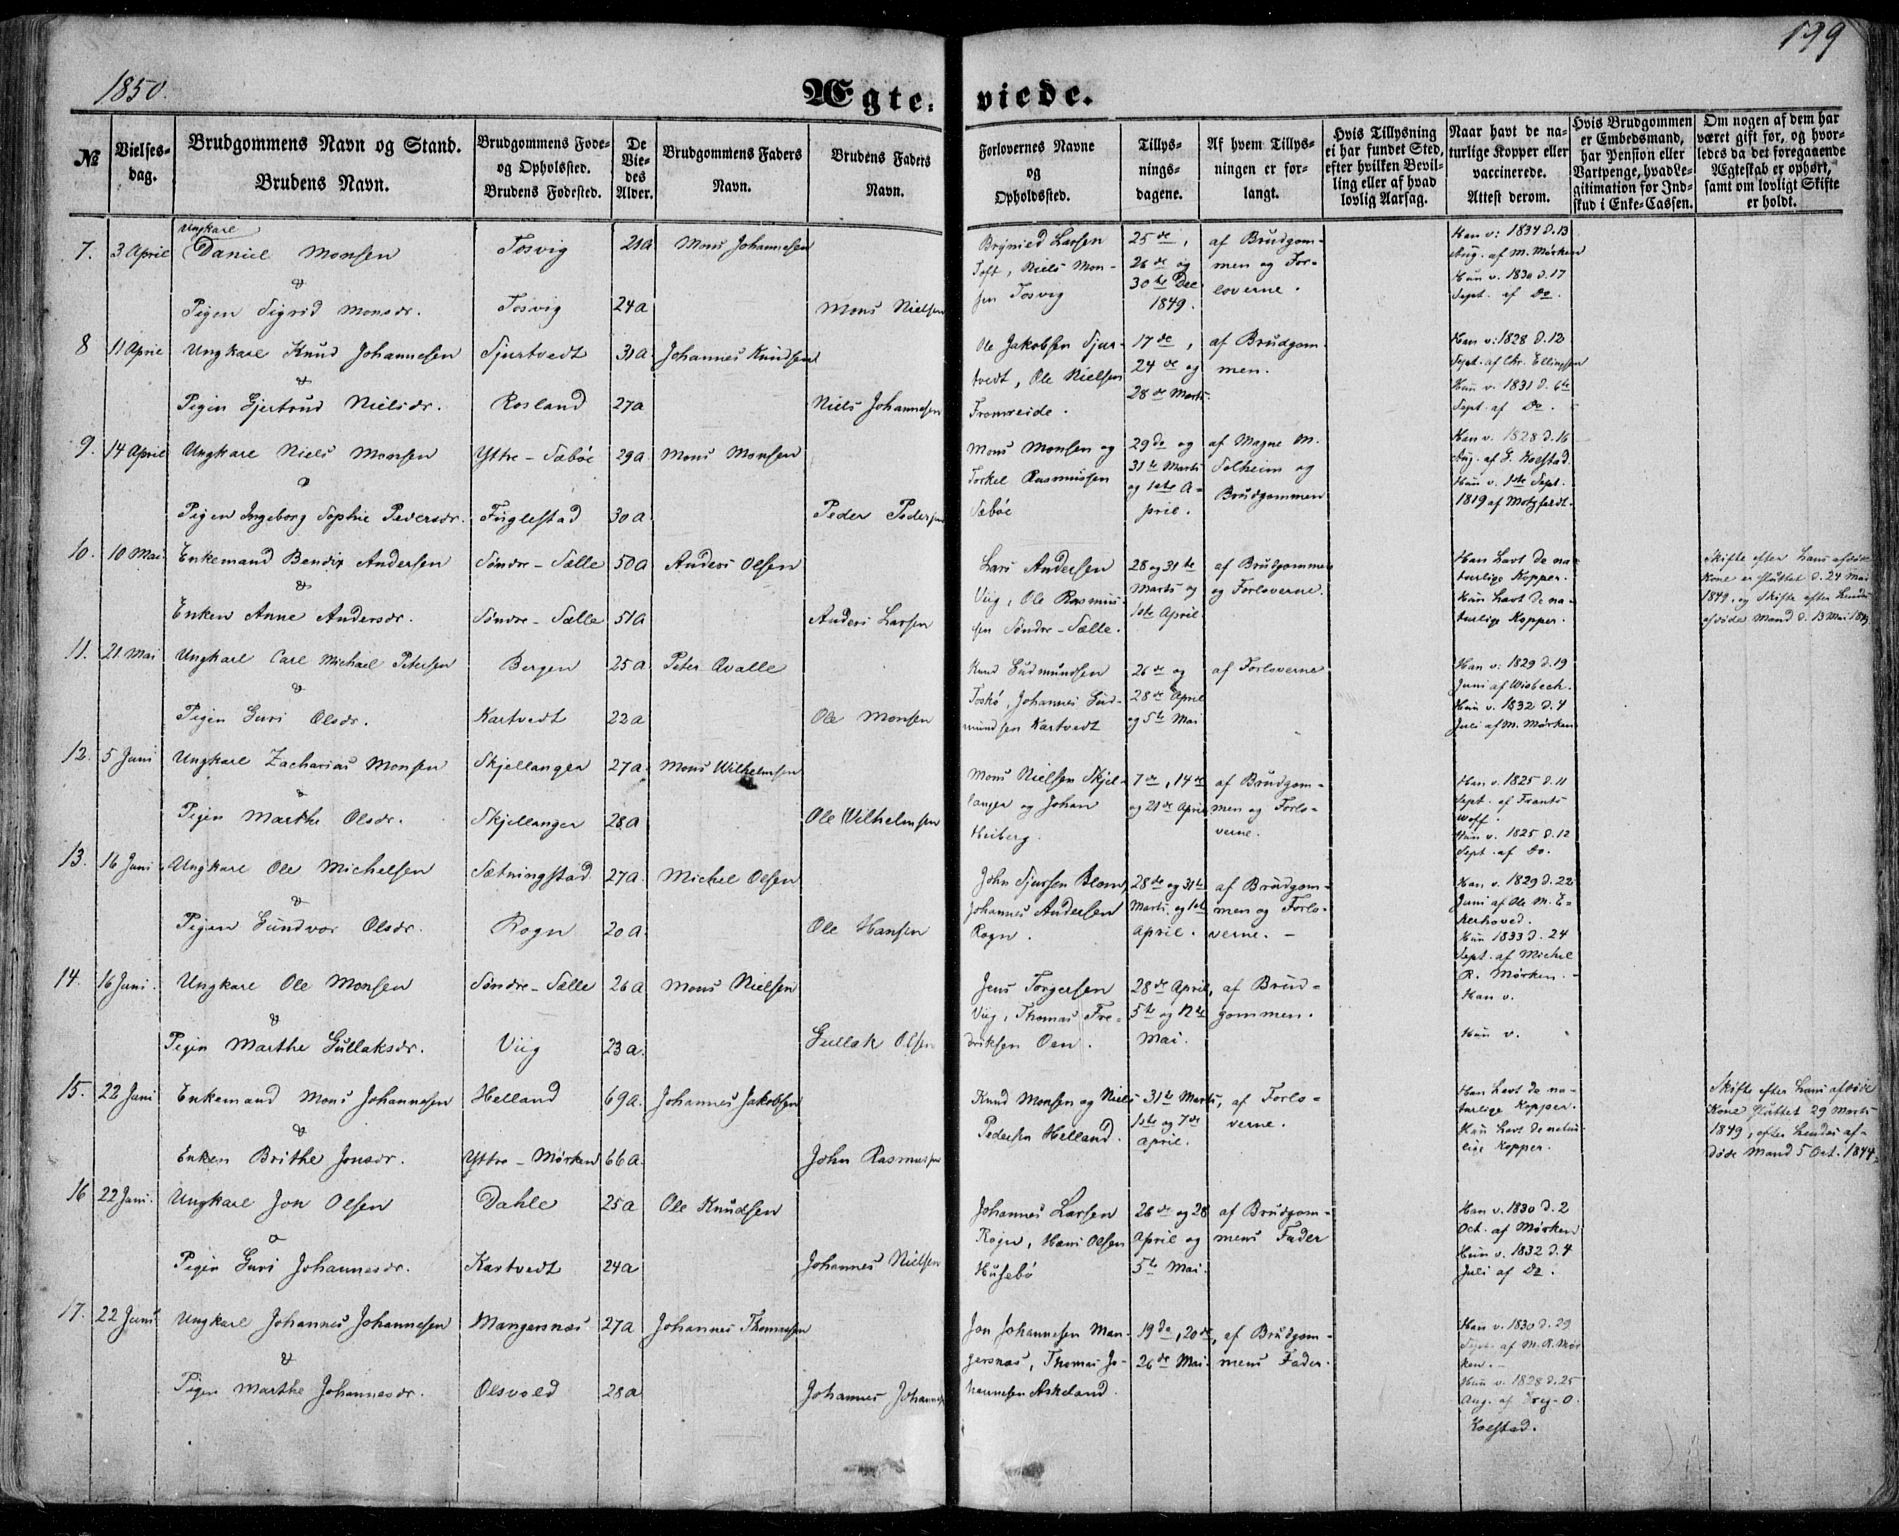 199
1850.
Ægteviede.
№
Vielsesdag.
Brudgommens Navn og Stand.
Brudens Navn.
Brudgommens Fødeog Opholdssted.
Brudens Fødested.
De Viedes Alder.
Brudgommens Faders Navn.
Brudens Faders Navn.
Forlovernes Navne og Opholdssted.
Tillysningsdagene.
Af hvem Tillysningen er forlangt.
Hvis Tillysning ei har fundet Sted, efter hvilken Bevilling eller af hvad lovlig Aarsag.
Naar havt de naturlige Kopper eller vaccinerede. Attest derom.
Hvis Brudgommen er Embedsmand, har Pension eller Vartpenge, hvad Legitimation for Indskud i Enke-Cassen.
Om nogen af dem har været gift før, og hvorledes da det foregaaende Ægteskab er ophørt, samt om lovligt Skifte er holdt.
7. 3 April Ungkarl Daniel Monsen Tosvig 21a Mons Johannesen
&
Pigen Sigrid Monsdr. Tosvig 24a Mons Nielsen
Brynild Larsen Toft, Niels Monsen Tosvig
25de, 26de og 30te Dec 1849.
af Brudgommen og Forloverne.
Han v: 1834 d. 13 Aug. af M. Mørken
Hun v. 1830 d. 17 Sept. af Do.
8 11 April Ungkarl Knud Johannesen Sjurtvedt 31a Johannes Knudsen
&
Pigen Gjertrud Nielsdr. Rosland 27a Niels Johannesen
Ole Jakobsen Sjurtvedt, Ole Nielsen Fromreide.
17de, 24de og 28de Marts
af Brudgommen.
Han v: 1828 d. 12 Sept. af Chr. Ellingsen
Hun v. 1831 d. 6te Sept. af Do.
9. 14 April Ungkarl Niels Monsen Yttre-Sæbøe 29a Mons Monsen
&
Pigen Ingeborg Sophie Pedersdr. Fuglestad 30a Peder Pedersen
Mons Monsen og Torkel Rasmussen Sæbøe
29de og 31te Marts og 1ste April.
af Magne M. Solheim og Brudgommen
Han v. 1828 d. 16 Aug. af L. Kolstad.
Hun v. 1ste Sept. 1819 af Motzfeldt.
10. 10 Mai Enkemand Bendix Andersen Søndre-Sælle 50a Anders Olsen
&
Enken Anne Andersdr. Søndre-Sælle 51a Anders Larsen
Lars Andersen Viig, Ole Rasmussen Søndre-Sælle.
28 og 31te Marts og 1ste April
af Brudgommen og Forloverne.
Han havt de naturlige Kopper.
Hun havt de naturlige Kopper.
Skifte efter hans afdøde Kone er sluttet d. 24 Mai 1849, og Skifte efter hendes afdøde Mand d. 13 Mai 1849
11. 21 Mai Ungkarl Carl Michael Petersen Bergen 25a Peter Qvalle
&
Pigen Guri Olsdr. Kartvedt 22a Ole Monsen
Knud Gudmundsen Toskø, Johannes Gudmundsen Kartvedt
26de og 28de April og 5te Mai
af Forloverne
Han v: 1829 d. 19 Juni af Wisbech.
Hun v. 1832 d. 4 Juli af M. Mørken
12. 5 Juni Ungkarl Zacharias Monsen Skjellanger 27a Mons Wilhelmsen
&
Pigen Marthe Olsdr. Skjellanger 28a Ole Wilhelmsen
Mons Nielsen Skjellanger og Johan Heiberg.
7de, 14de og 21de April
af Brudgommen og Forloverne.
Han v. 1825 d. 11 Sept. af Frants Woff.
Hun v. 1825 d. 12 Sept. af Do.
13. 16 Juni Ungkarl Ole Michelsen Sætningstad 27a Michel Olsen
&
Pigen Gundvor Olsdr. Rogn 20a Ole Hansen
John Sjursen Blom, Johannes Andersen Rogn.
28de og 31te Marts og 1ste April.
af Brudgommen og Forloverne.
Han v. 1829 d. 22 Juni af Ole M. Ekerhoved.
Hun 1833 d. 24 Sept. af Michel R. Mørken.
14. 16 Juni. Ungkarl Ole Monsen Søndre-Sælle 26a Mons Nielsen
&
Pigen Marthe Gullaksdr. Viig 23a. Gullak Olsen
Jens Torgersen Viig, Thomas Fredriksen Oen.
28de April, 5te og 12te Mai.
af Brudgommen.
Han v.
Hun v.
15. 22 Juni Enkemand Mons Johannesen Helland 69a. Johannes Jakobsen
&
Enken Brithe Jonsdr. Yttre-Mørken 66a. John Rasmussen
Knud Monsen og Niels Pedersen Helland.
31te Marts, 1ste og 7de April.
af Forloverne.
Han havt de naturlige Kopper.
Hun havt de naturlige Kopper.
Skifte efter hans afdøde Kone sluttet 29 Marts 1849, efter hendes afdøde Mand 5 Oct. 1844.
16 22 Juni. Ungkarl Jon Olsen Dahle 25a Ole Knudsen
&
Pigen Guri Johannesdr. Kartvedt 24a Johannes Nielsen
Johannes Larsen Rogn, Hans Olsen Husebø
26de og 28 April og 5te Mai.
af Brudgommens Fader
Han v. 1830 d. 2 Oct. af Mørken
Hun v. 1832 d. 4 Juli af Do.
17. 22 Juni Ungkarl Johannes Johannesen Mangersnæs 27a Johannes Thomasen
&
Pigen Marthe Johannesdr. Olsvold 28a Johannes Johannesen
Jon Johannesen Mangersnæs, Thomas Johannesen Askeland.
19de, 20de, 26de Mai.
af Brudgommens Fader.
Han v. 1830 d. 29 Sept. af M. R. Mørken.
Hun v. 1828 d. 25 Aug. af Greg. O. Kolstad.